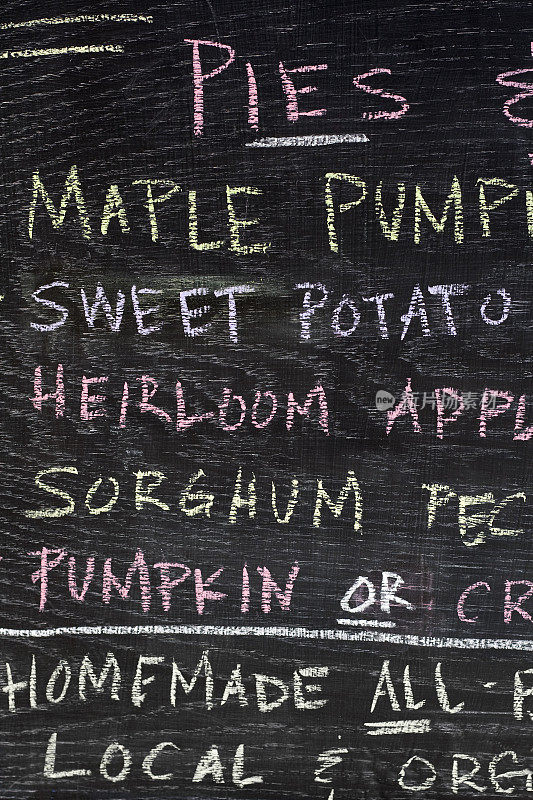 PIES &
MAPLE PUMP
SWEET POTATO
HEIRLOOM APPL
SORGHUM PEC
PUMPKIN OR CR
HOMEMADE ALL-P
LOCAL & ORG
new 新图片素材